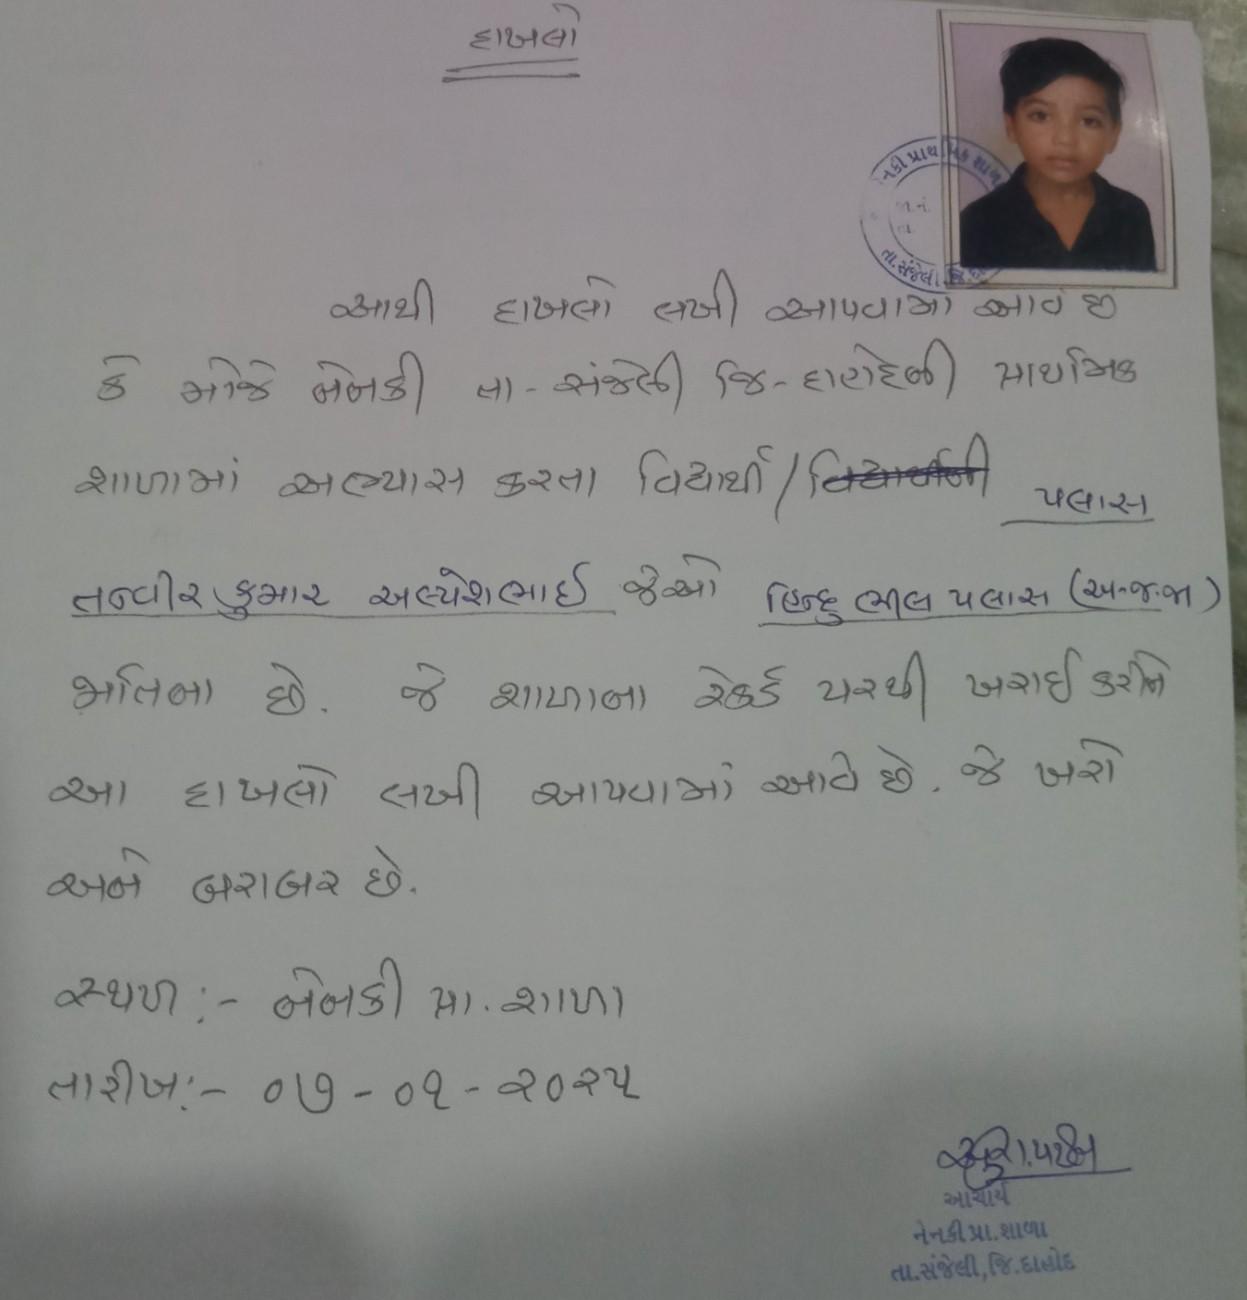 દાખલો
નકી પ્રાથમિક શાળા
તા.સંજેલી જિ.
આથી દાખલો લખી આપવામાં આવે છે
કે મોજે નેનકી તા - સંજેલી જિ - દાહોદની પ્રાથમિક
શાળામાં અભ્યાસ કરતા વિદ્યાર્થી / પલાસ
તન્વીરકુમાર અલ્પેશભાઈ જેઓ હિન્દુ ભીલ પલાસ (અ.જ.જા)
જાતિના છે. જે શાળાના રેકર્ડ પરથી ખરાઈ કરીને
આ દાખલો લખી આપવામાં આવે છે. જે ખરો
અને બરાબર છે.
સ્થળ :- નેનકી પ્રા. શાળા
તારીખ:- ૦૭ - ૦૧ - ૨૦૨૫
આચાર્ય
નેનકી પ્રા. શાળા
તા.સંજેલી, જિ.દાહોદ